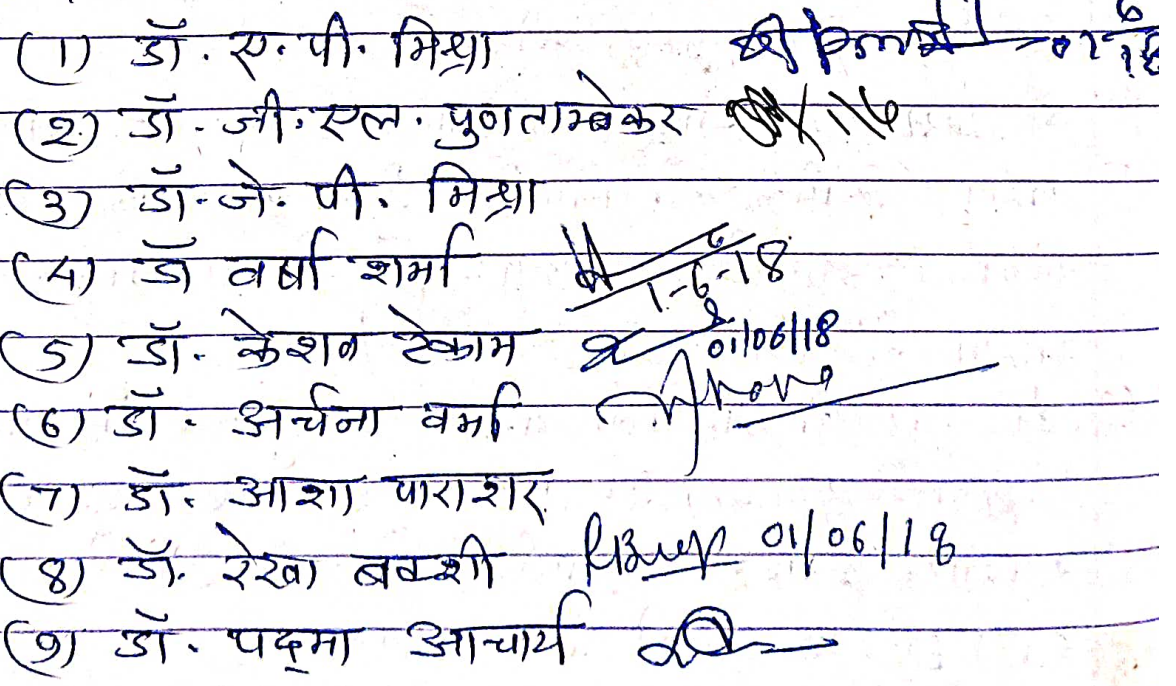 (1) डॉ. ए. पी. मिश्रा
(2) डॉ. जी. एल. पुणताम्बेकर 1/6
(3) डॉ. जे. पी. मिश्रा
(4) डॉ वर्षा शर्मा 1-6-18
(5) डॉ. केशव टेकाम 01/06/18
(6) डॉ. अर्चना वर्मा
(7) डॉ. आशा पाराशर
(8) डॉ. रेखा बक्शी 01/06/18
(9) डॉ. पद्मा आचार्य